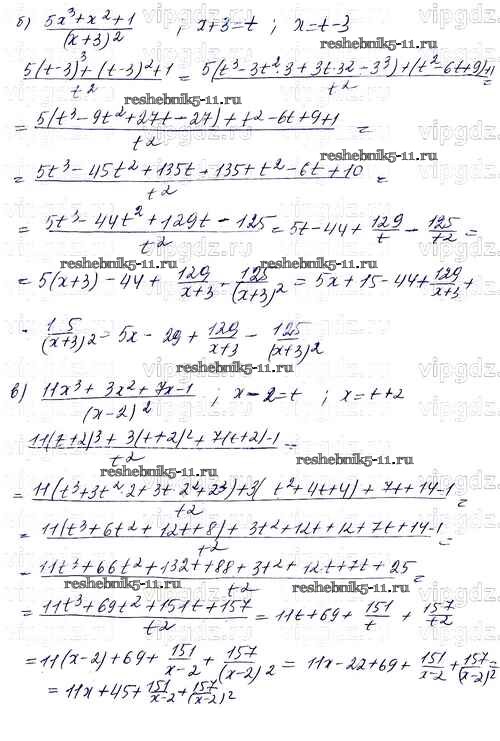 б) (5x³+x²+1)/(x+3)² ; x+3=t ; x=t-3
(5(t-3)³+(t-3)²+1)/t² = (5(t³-3t²·3+3t·3²-3³)+(t²-6t+9)+1)/t² =
reshebnik5-11.ru reshebnik5-11.ru
= (5(t³-9t²+27t-27)+t²-6t+9+1)/t² =
= (5t³-45t²+135t+135+t²-6t+10)/t² =
= (5t³-44t²+129t-125)/t² = 5t-44+129/t-125/t² =
reshebnik5-11.ru reshebnik5-11.ru
= 5(x+3)-44+129/(x+3)-125/(x+3)² = 5x+15-44+129/(x+3)+
- 15/(x+3)² = 5x-29+129/(x+3)-125/(x+3)²
reshebnik5-11.ru
в) (11x³+3x²+7x-1)/(x-2)² ; x-2=t ; x=t+2
(11(t+2)³+3(t+2)²+7(t+2)-1)/t² =
reshebnik5-11.ru
= (11(t³+3t²·2+3t·2²+2³)+3(t²+4t+4)+7t+14-1)/t² =
reshebnik5-11.ru
= (11(t³+6t²+12t+8)+3t²+12t+12+7t+14-1)/t² =
- (11t³+66t²+132t+88+3t²+12t+7t+25)/t² =
reshebnik5-11.ru reshebnik5-11.ru
= (11t³+69t²+151t+157)/t² = 11t+69+151/t+157/t²
= 11(x-2)+69+151/(x-2)+157/(x-2)² = 11x-22+69+151/(x-2)+157/(x-2)² =
reshebnik5-11.ru
= 11x+45+151/(x-2)+157/(x-2)²